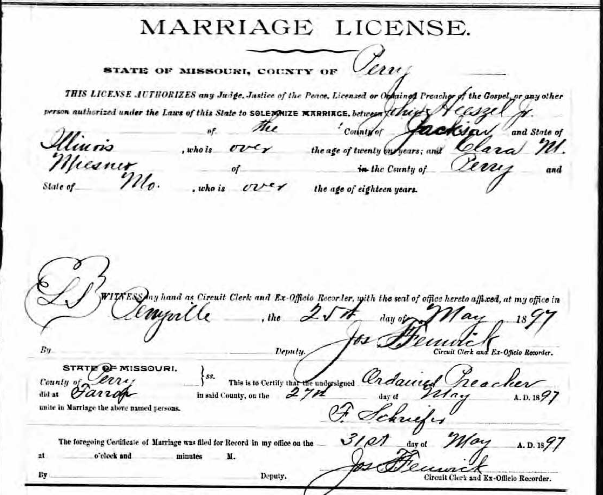 MARRIAGE LICENSE.
STATE OF MISSOURI, COUNTY OF Perry
THIS LICENSE AUTHORIZES any Judge, Justice of the Peace, Licensed or Ordained Preacher of the Gospel, or any other
person authorized under the Laws of this State to SOLEMNIZE MARRIAGE, between John Jr.
of the County of Jackson and State of
Illinois, who is over the age of twenty one years; and Clara M.
Miesner of in the County of Perry and
State of Mo. , who is over the age of eighteen years.
L S WITNESS my hand as Circuit Clerk and Ex-Officio Recorder, with the seal of office hereto affixed, at my office in
Perryville , the 25th day of May 1897
Jos Fenwick
By Deputy. Circuit Clerk and Ex-Officio Recorder.
STATE OF MISSOURI,
County of Perry } ss. This is to Certify that the undersigned Ordained Preacher
did at Farrar in said County, on the 27th day of May A. D. 1897
unite in Marriage the above named persons. F.
The foregoing Certificate of Marriage was filed for Record in my office on the 31st day of May A. D. 1897
at o'clock and minutes M. Jos Fenwick
By Deputy. Circuit Clerk and Ex-Officio Recorder.